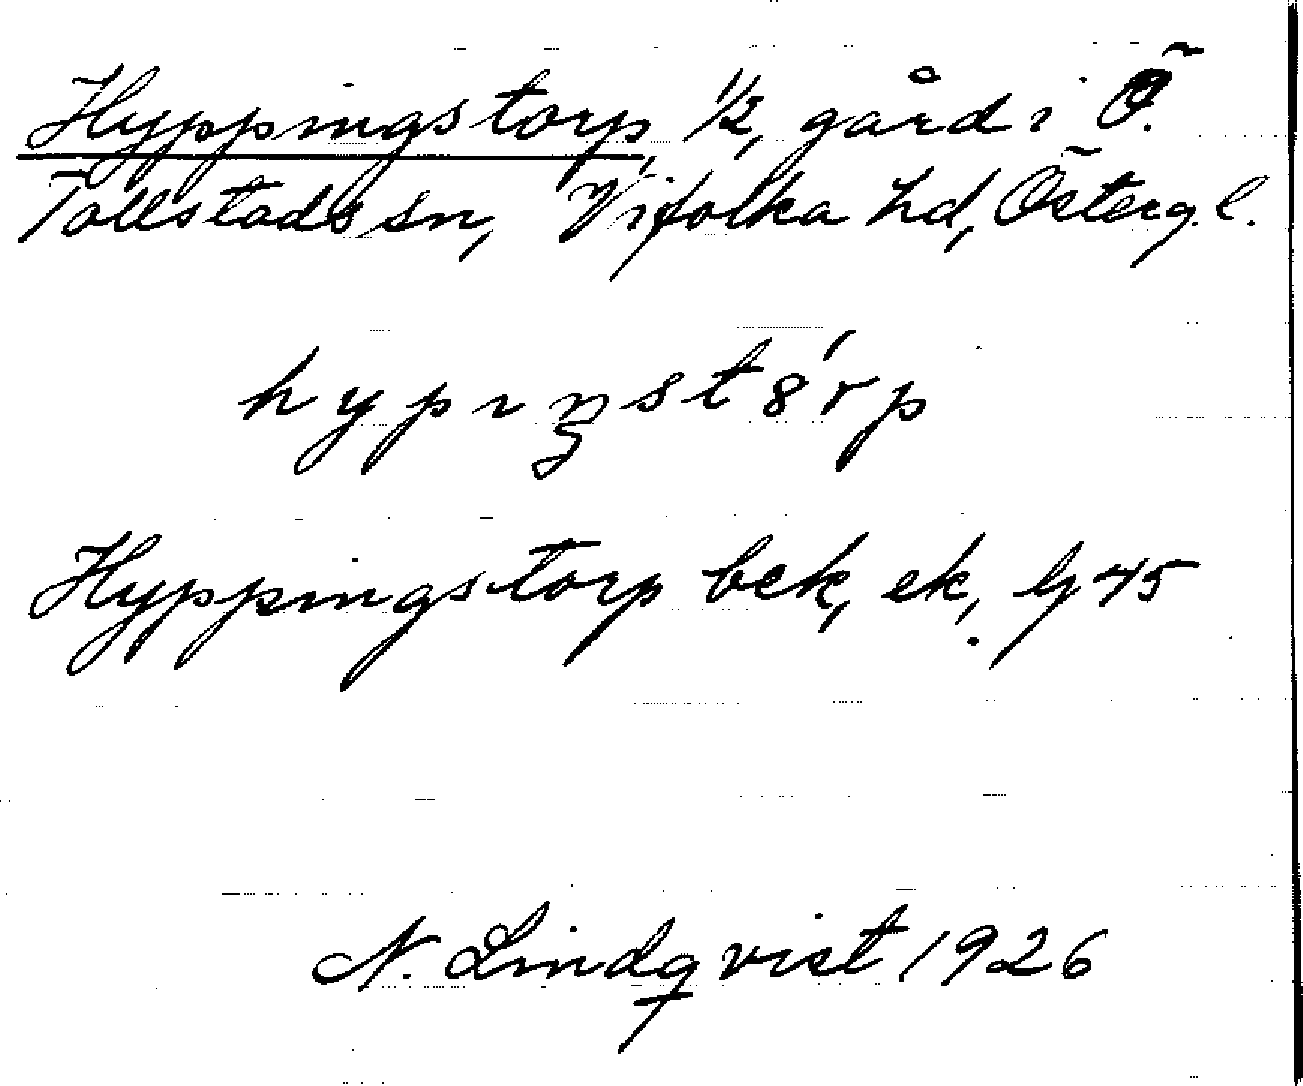 Hyppingstorp ½, gård i Ö.
Tollstads sn, Vifolka hd, Österg. l.
hypıŋst8´rp
Hyppingstorp bek, ek, Gj 45
N. Lindqvist 1926